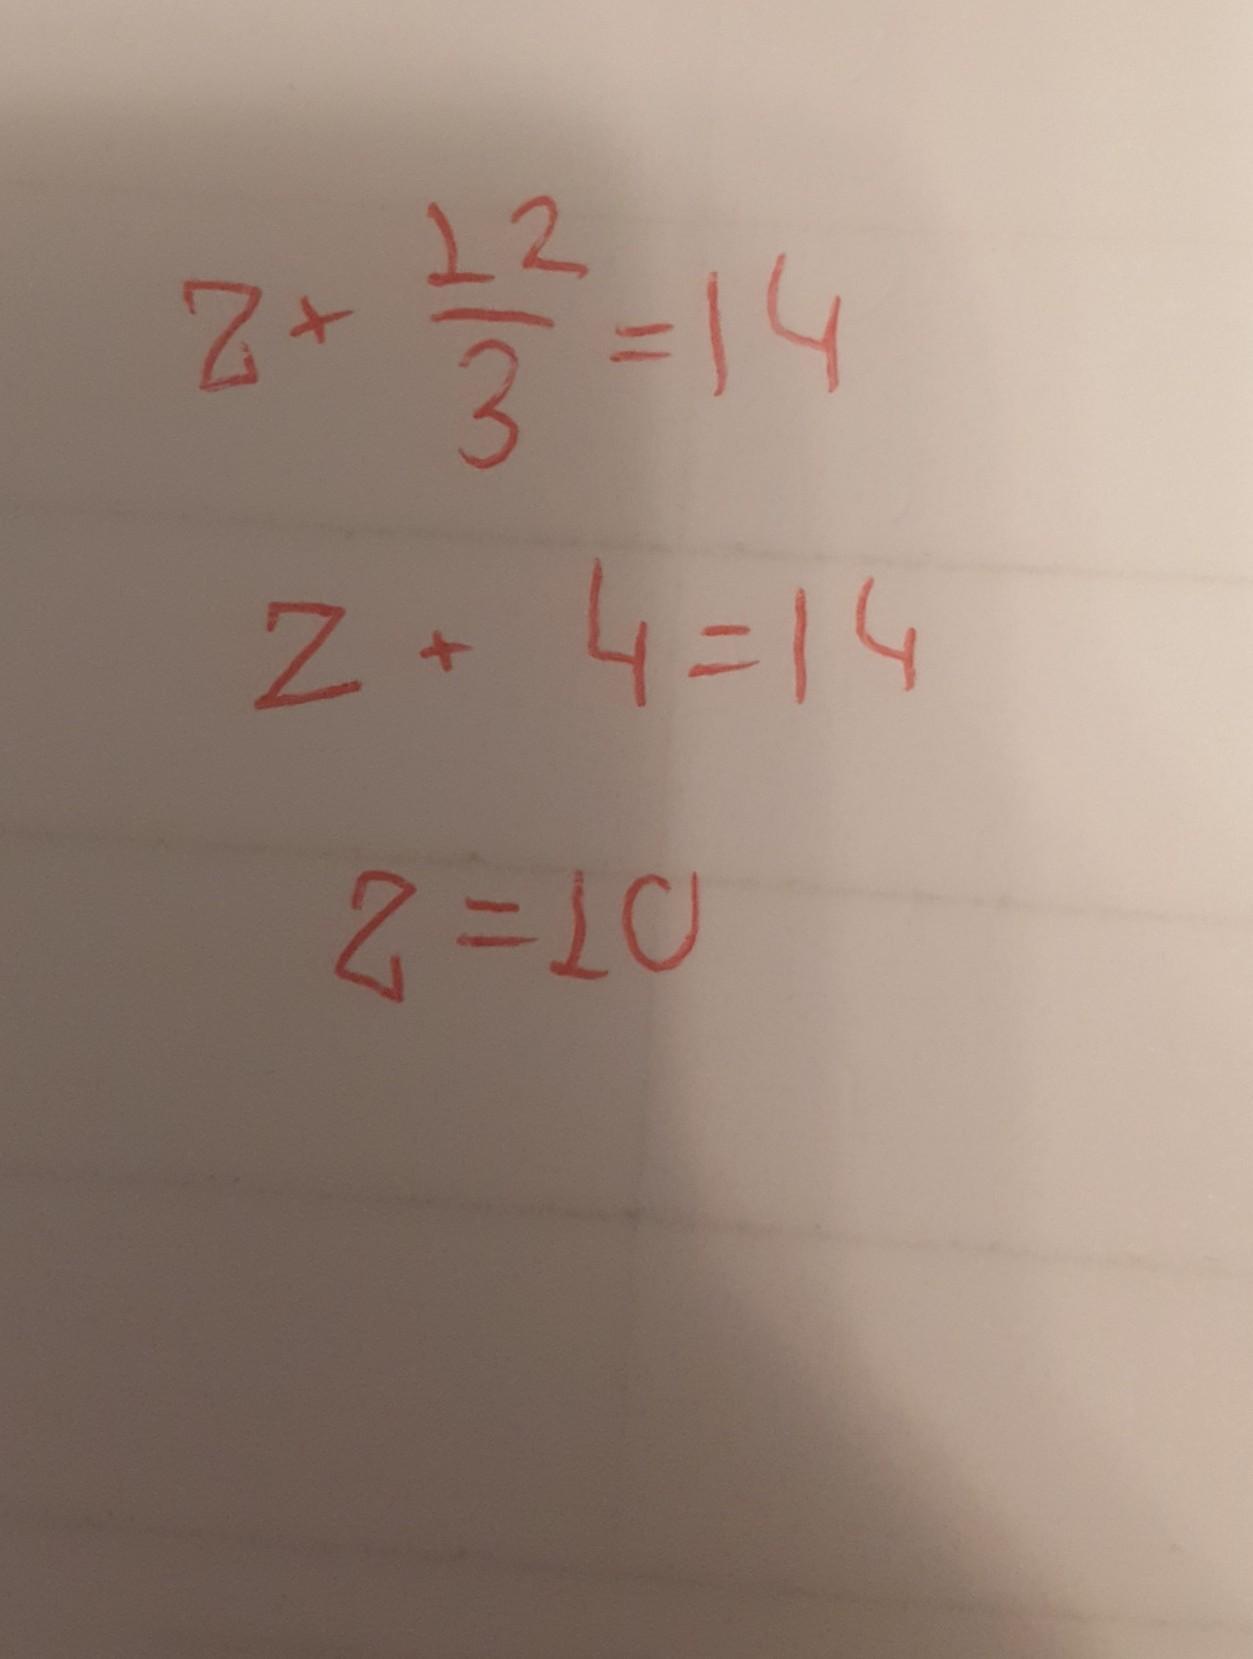 z + 12/3 = 14
z + 4 = 14
z = 10